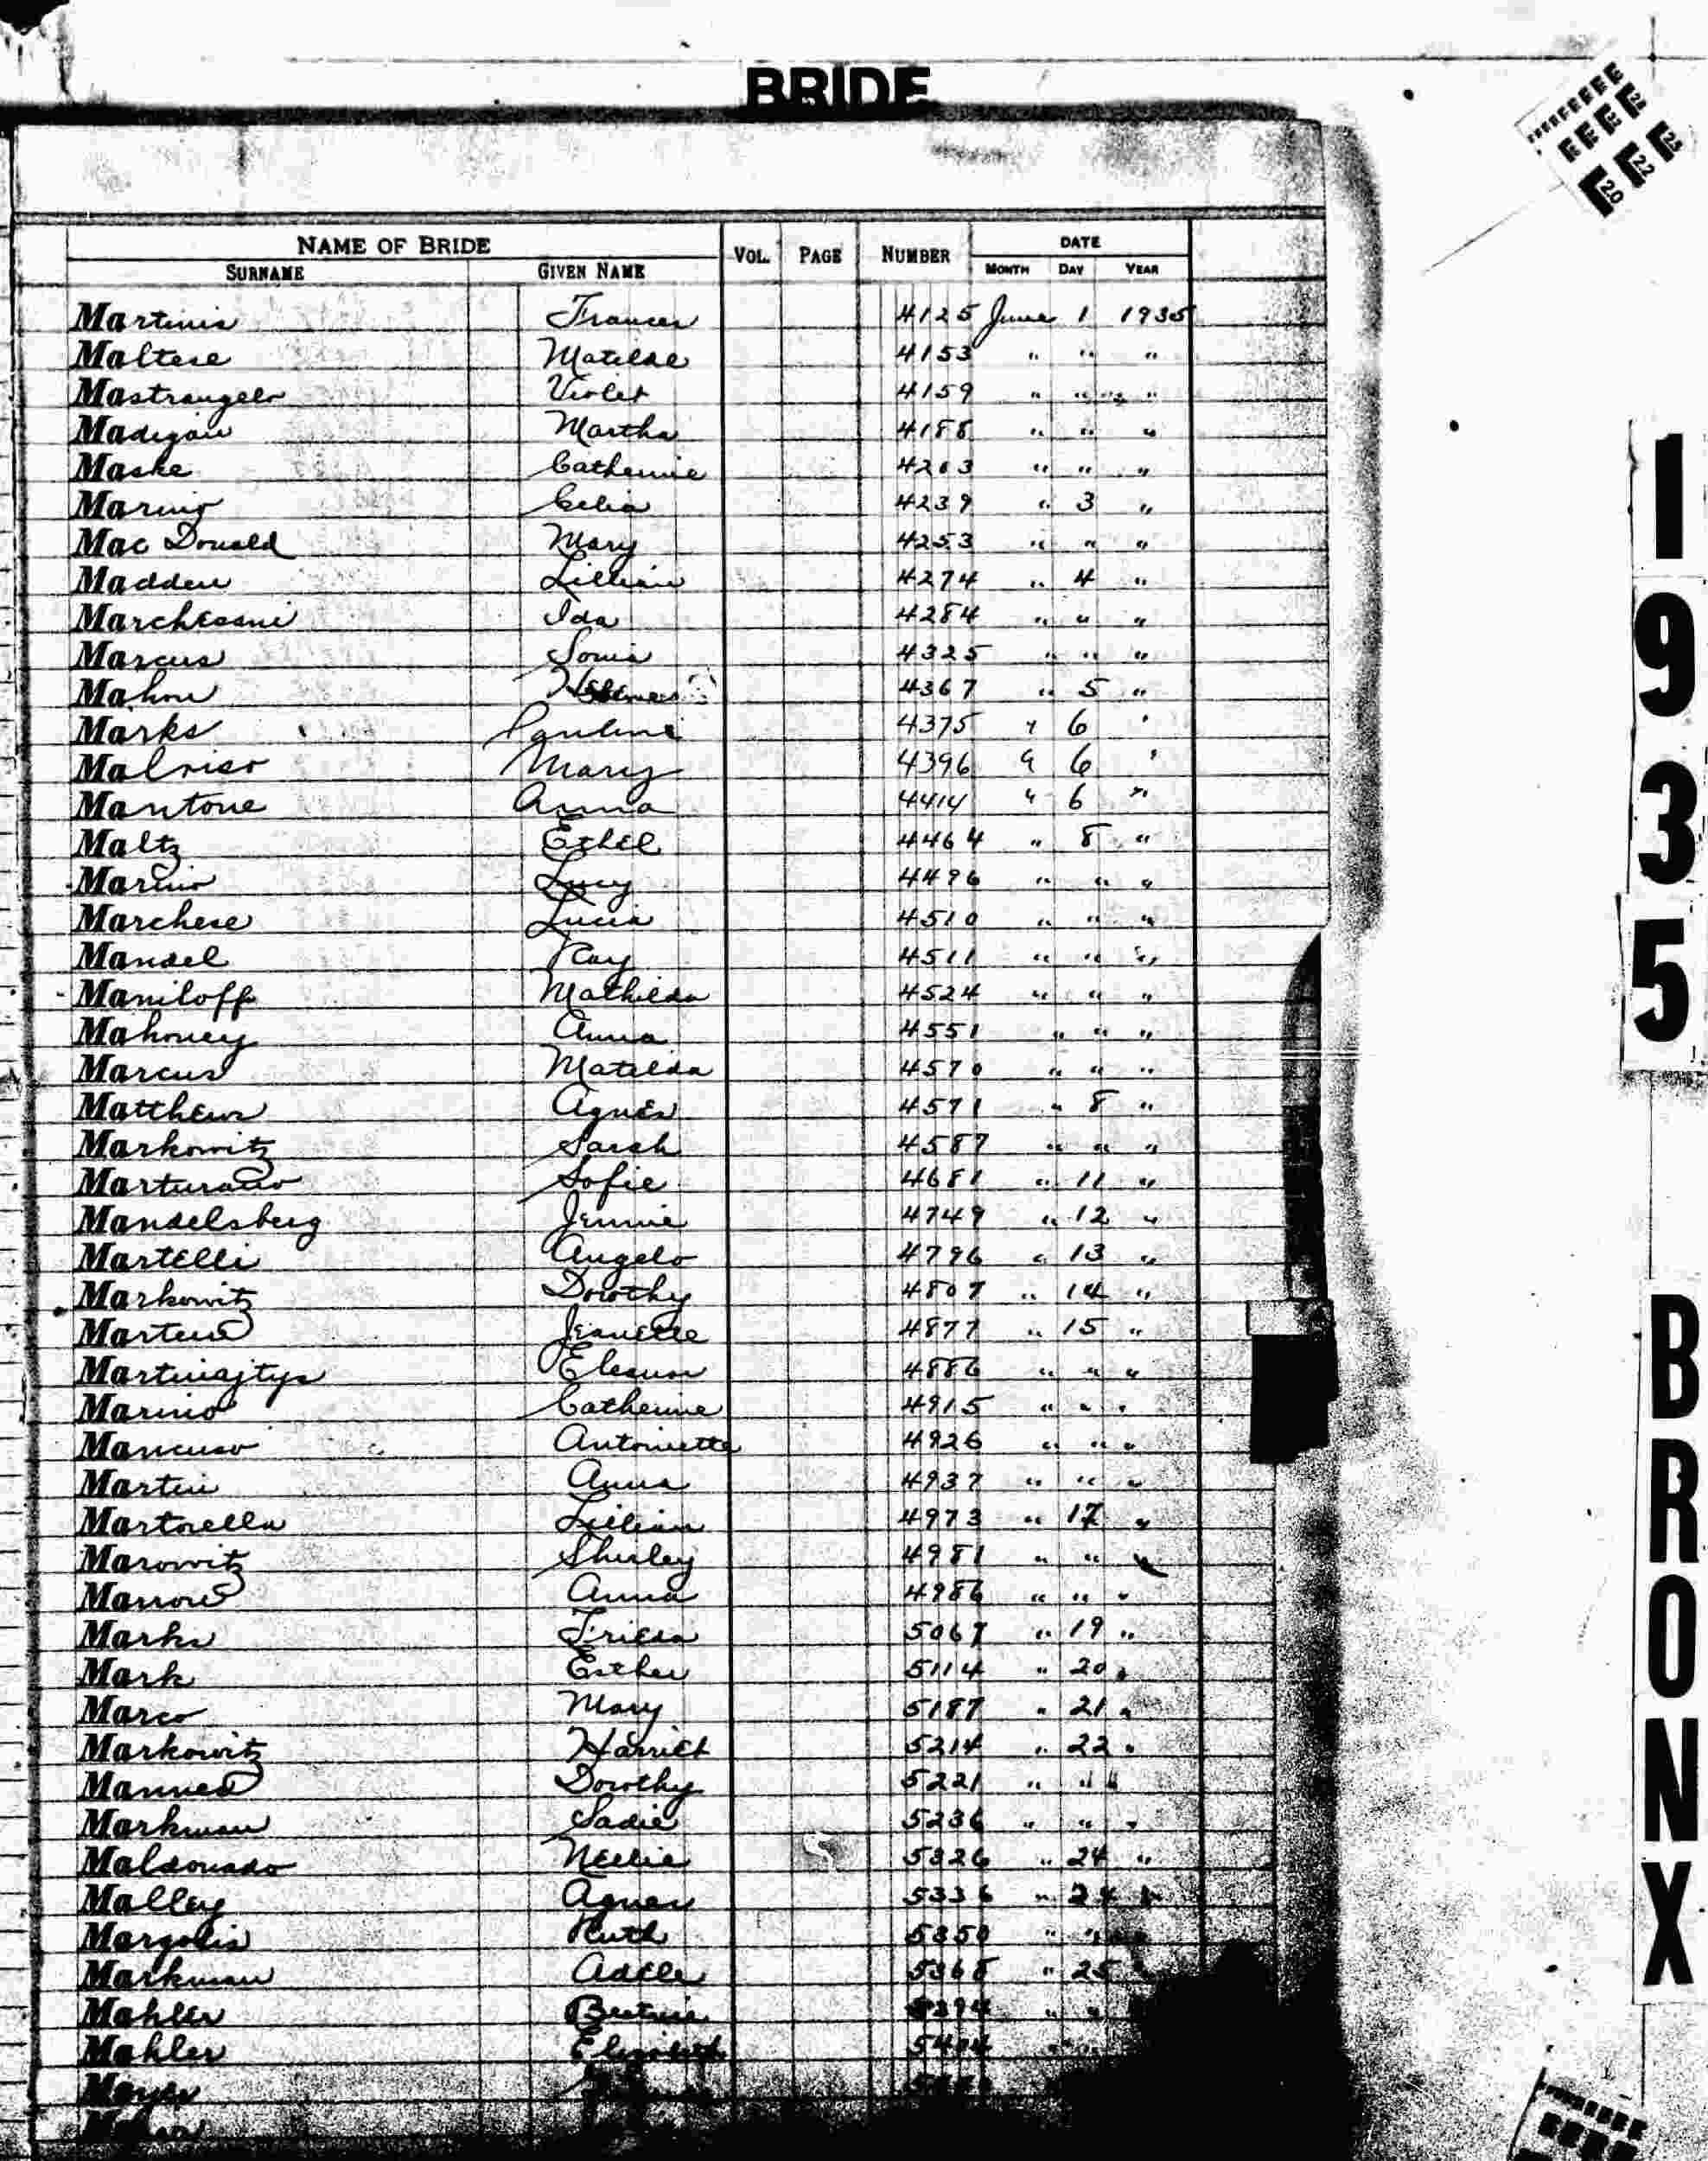 BRIDE
NAME OF BRIDE VOL. PAGE NUMBER DATE
SURNAME GIVEN NAME MONTH DAY YEAR
Martinis Frances 4125 June 1 1935
Maltese Matilde 4153 " " "
Mastrangelo Violet 4159 " " "
Madigan Martha 4188 " " "
Maske Catherine 4203 " " "
Marino Celia 4239 " 3 "
Mac Donald Mary 4253 " " "
Madden Lillian 4274 " 4 "
Marchesani Ida 4284 " " "
Marcus Sonia 4325 " " "
Mahon 4367 " 5 "
Marks Pauline 4375 " 6 "
Malviso Mary 4396 " 6 "
Mantone Anna 4414 " 6 "
Maltz Ethel 4464 " 8 "
Marino Lucy 4496 " " "
Marchese Lucia 4510 " " "
Mandel Ray 4511 " " "
Maniloff Mathilda 4524 " " "
Mahoney Anna 4551 " " "
Marcus Matilda 4570 " " "
Matthews Agnes 4571 " 8 "
Markowitz Sarah 4587 " " "
Marturano Sofie 4681 " 11 "
Mandelsberg Jennie 4749 " 12 "
Martelli Angelo 4796 " 13 "
Markowitz Dorothy 4807 " 14 "
Martens Jeanette 4877 " 15 "
Eleanor 4886 " " "
Marino Catherine 4915 " " "
Mancuso Antoinette 4926 " " "
Martin Anna 4937 " " "
Martorella Lillian 4973 " 17 "
Marowitz Shirley 4981 " " "
Anna 4986 " " "
Marks Frieda 5067 " 19 "
Mark Esther 5114 " 20 "
Marco Mary 5187 " 21 "
Markowitz Harriet 5214 " 22 "
Dorothy 5221 " " "
Markman Sadie 5236 " " "
Maldonado Nellie 5326 " 24 "
Malley Agnes 5336 " 24 "
Margolis Ruth 5350 "
Markman Adele 5368 " 25
Mahler Beatrice 5394 " "
Mahler Elizabeth 5404
Mayer
1935
BRONX